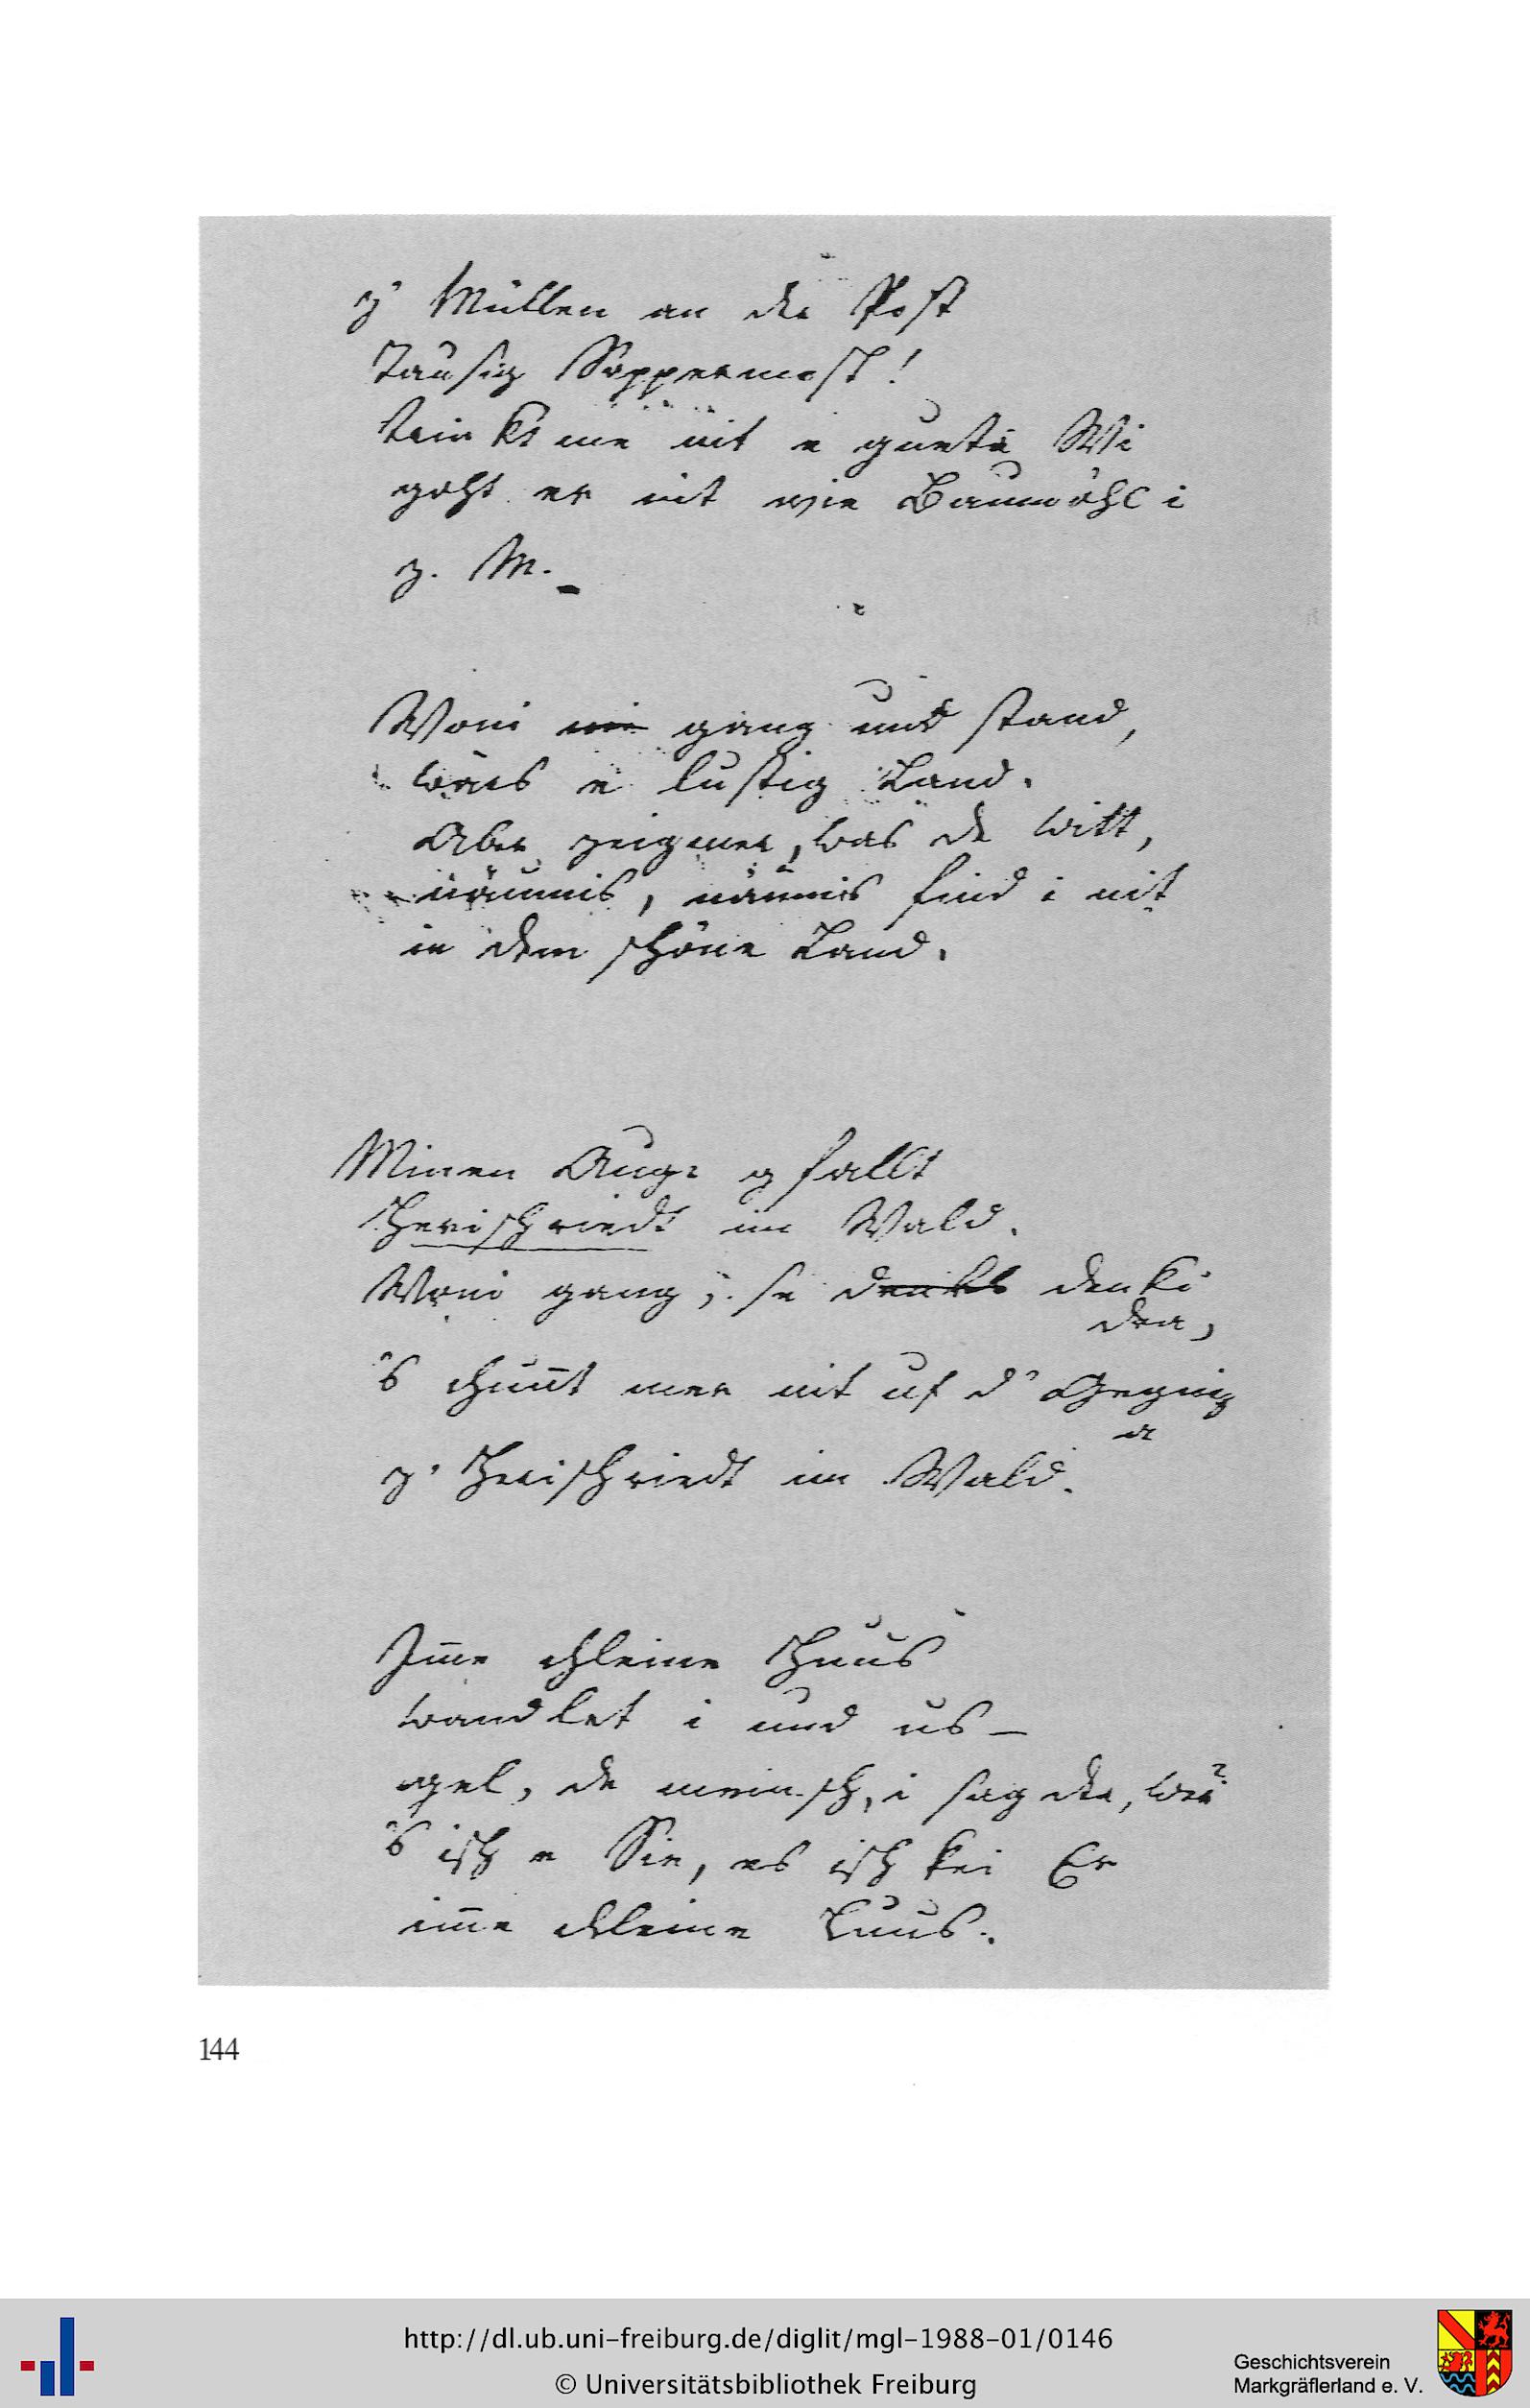 z' Müllen an der Post
Tausig Sappermost!
Trinkt me nit e guete Wi
goht er nit wie Baumöhl i
z. M.
Woni gang und stand,
wärs e lustig Land.
Aber zeig mer, was de witt,
näumis, näumis find i nit
in dem schöne Land.
Minen Auge gfallt
Herischriedt im Wald.
Woni gang, se denkt denki
dra,
's chunnt mer nit uf d' Gegnig
a
z' Herischriedt im Wald.
Imme chleine Huus
wandlet i und us –
gel, de meinsch, i sag der, wer?
's isch e Sie, es isch kei Er
imme chleine Huus.
144
http://dl.ub.uni-freiburg.de/diglit/mgl-1988-01/0146
© Universitätsbibliothek Freiburg
Geschichtsverein
Markgräflerland e. V.